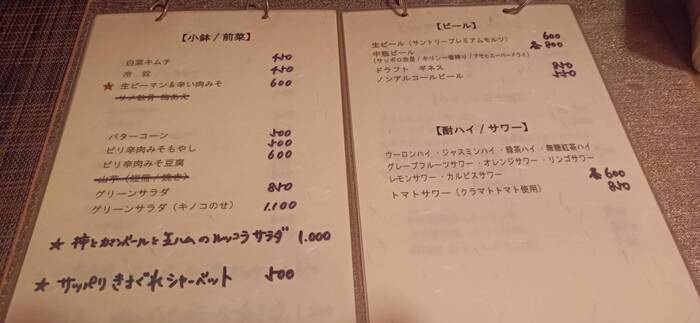 【小鉢 / 前菜】
白菜キムチ 450
冷 奴 450
★ 生ピーマン&辛い肉みそ 600
サメ軟骨 梅あえ
バターコーン 500
ピリ辛肉みそもやし 500
ピリ辛肉みそ豆腐 600
山芋(短冊/焼き)
グリーンサラダ 850
グリーンサラダ(キノコのせ) 1.100
★ 柿とカマンベールと生ハムのルッコラサラダ 1.000
★ サッパリ きまぐれシャーベット 500
【ビール】
生ビール(サントリープレミアムモルツ) 600
中瓶ビール 各 800
(サッポロ赤星/キリン一番搾り/アサヒスーパードライ)
ドラフト ギネス 850
ノンアルコールビール 550
【酎ハイ / サワー】
ウーロンハイ・ジャスミンハイ・緑茶ハイ・無糖紅茶ハイ
グレープフルーツサワー・オレンジサワー・リンゴサワー
レモンサワー・カルピスサワー 各 600
トマトサワー(クラマトトマト使用) 850